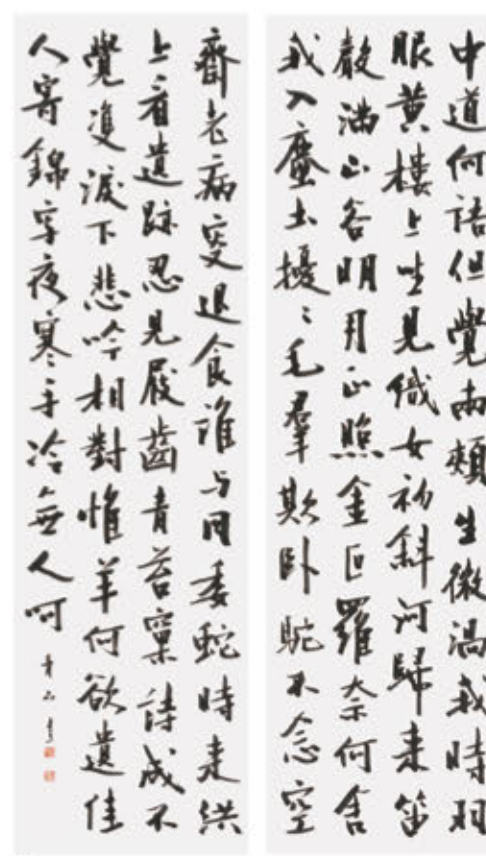 中道何語但覺兩頰生微渦我時羽
服黃樓上坐見織女初斜河歸來笛
聲滿山谷明月正照金叵羅奈何舍
我入塵土擾〻毛羣欺臥駝不念空
齋老病叟退食誰与同委蛇時來洪
上看遺跡忍見屐齒青苔窠詩成不
覺雙淚下悲吟相對惟羊何欲遣佳
人寄錦字夜寒手冷無人呵